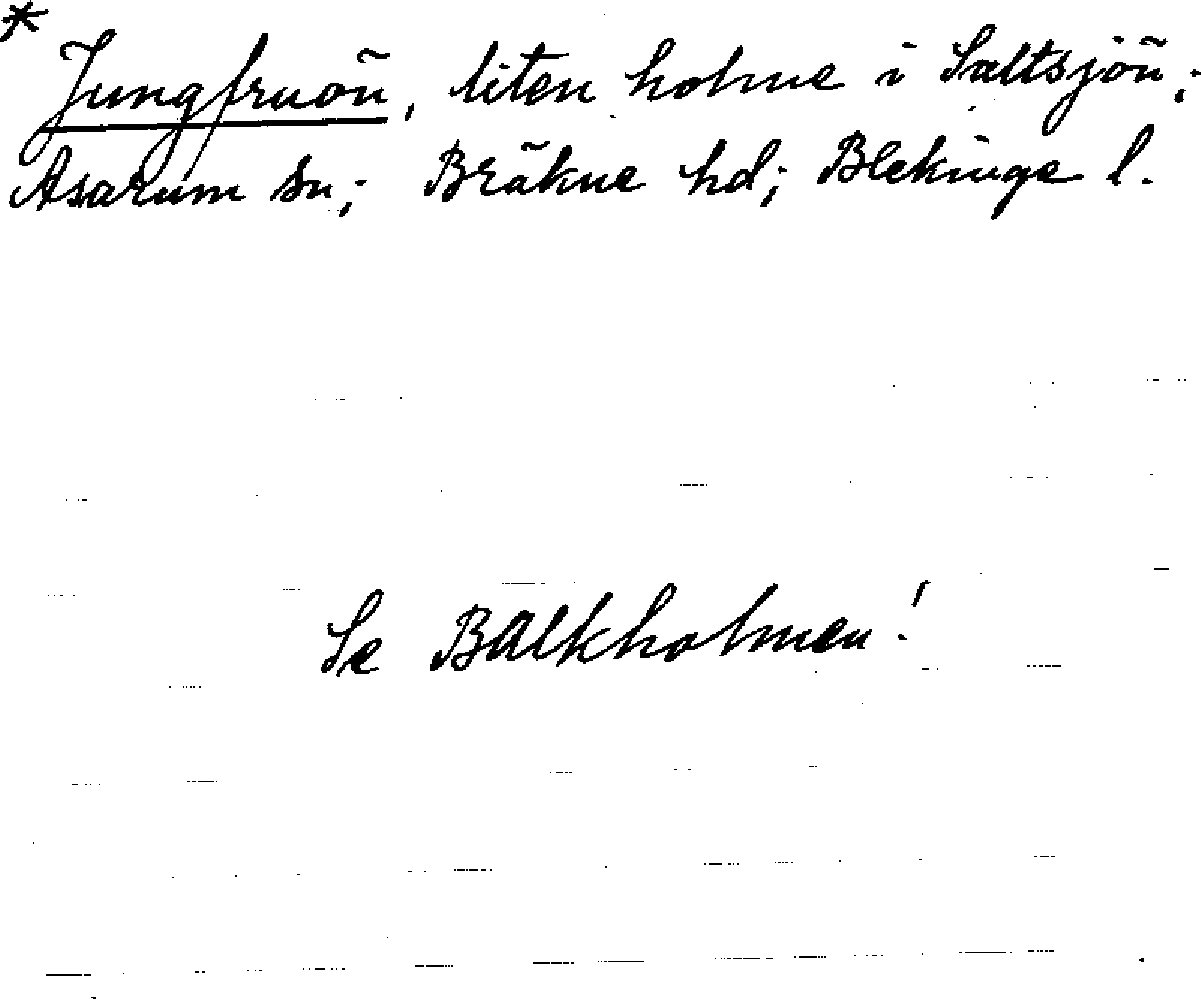 * Jungfruön, liten holme i Saltsjön;
Asarum sn; Bräkne hd; Blekinge l.
Se Bälkholmen!